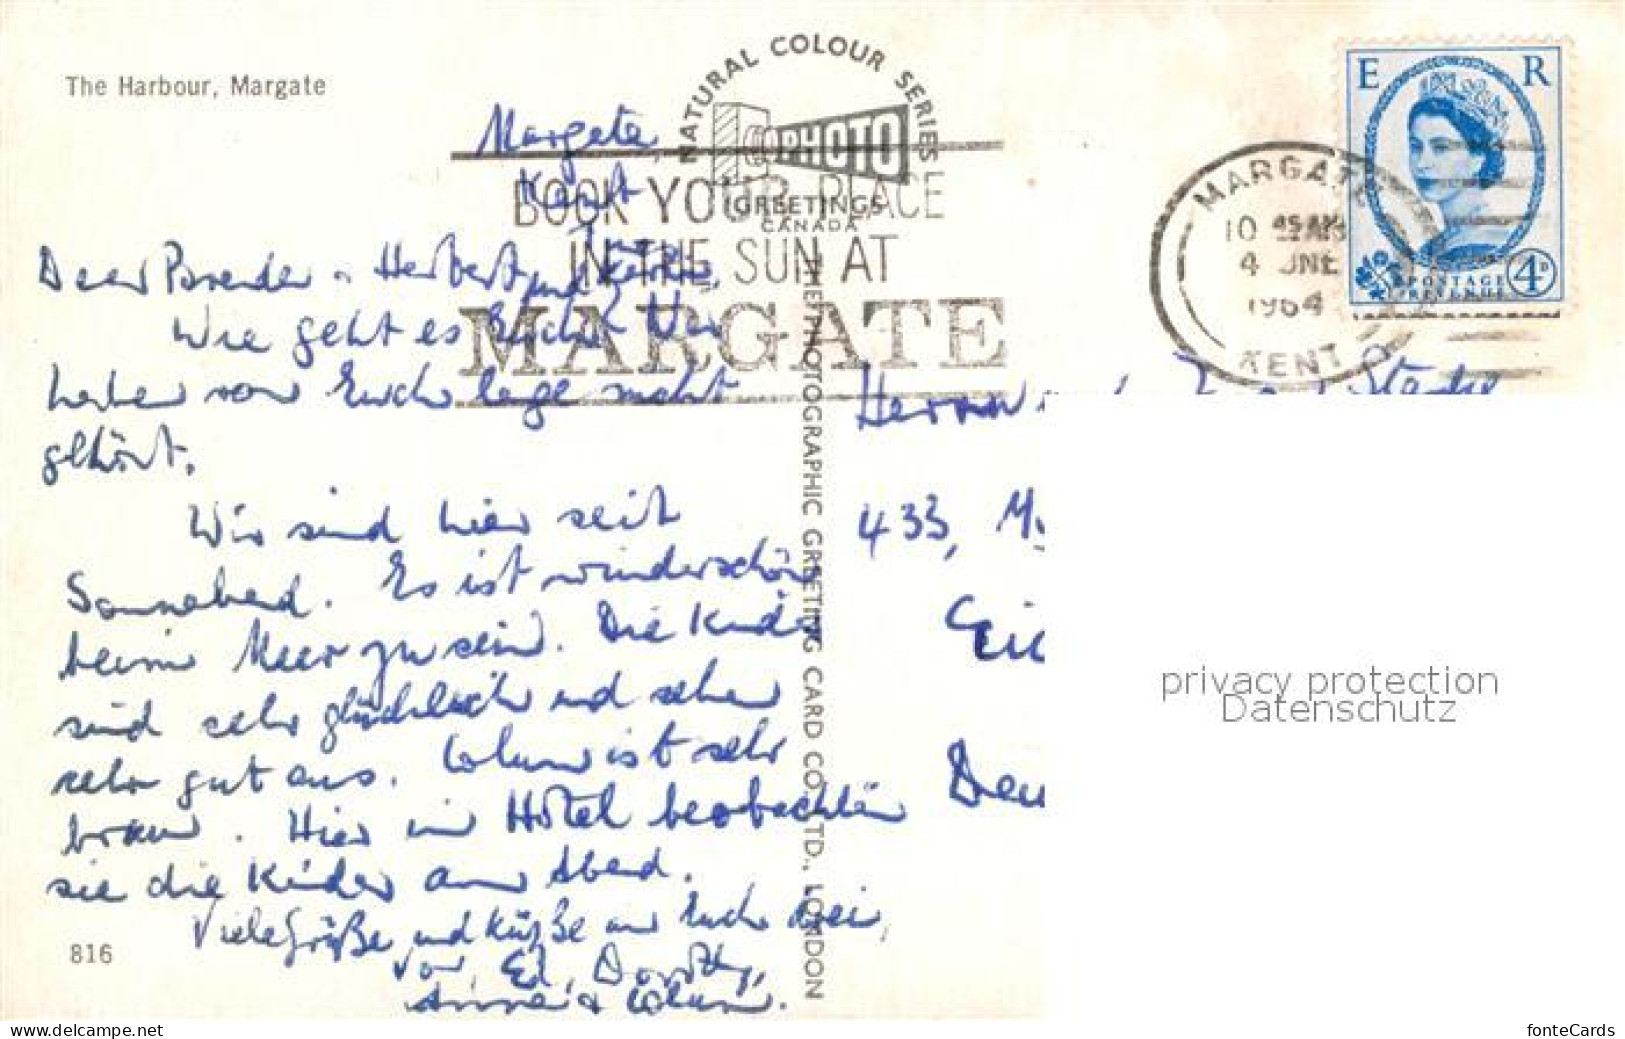 The Harbour, Margate
NATURAL COLOUR SERIES
PHOTO
GREETINGS
CANADA
BOOK YOUR PLACE
IN THE SUN AT
MARGATE
E R
POSTAGE
REVENUE
4D
MARGATE
10 45 AM
4 JNE
1964
KENT
Margate,
Kent
Dear Brender - Herbert und
Wie geht es Euch? Wir
haben von Euch lange nicht
gehört.
Wir sind hier seit
Sonnabend. Es ist wunderschön
beim Meer zu sein. Die Kinder
sind sehr glücklich und sehen
sehr gut aus. Colum ist sehr
braun. Hier im Hotel beobachten
sie die Kinder am Abend.
Viele Grüße und Küße an Euch drei,
von Ed, Dorothy,
Anne & Colum.
THE PHOTOGRAPHIC GREETING CARD CO. LTD., LONDON
Herrn
433,
816
privacy protection
Datenschutz
www.delcampe.net
fonteCards